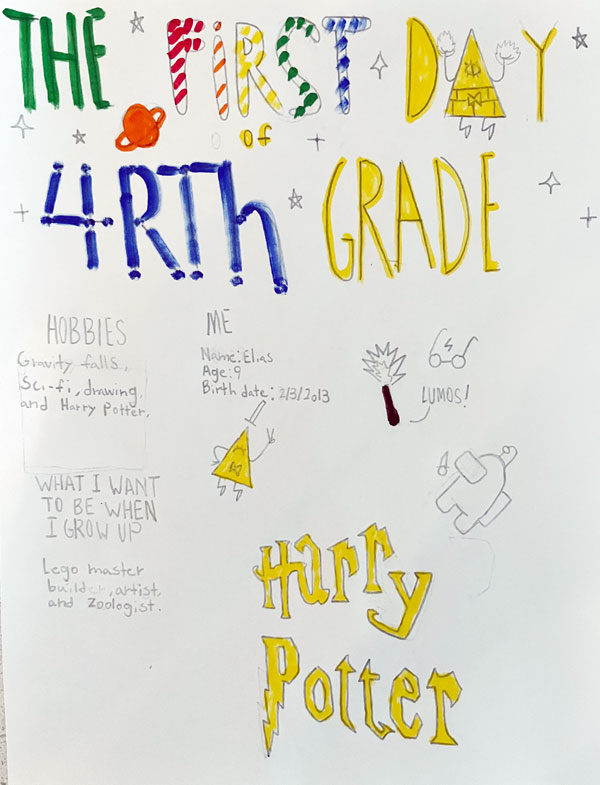 THE FiRST DAY
of
4RTh GRADE
HOBBIES
Gravity falls,
Sci-fi, drawing,
and Harry Potter.
ME
Name: Elias
Age: 9
Birth date: 2/3/2013
LUMOS!
WHAT I WANT
TO BE WHEN
I GROW UP
Lego master
builder, artist,
and Zoologist.
Harry
Potter